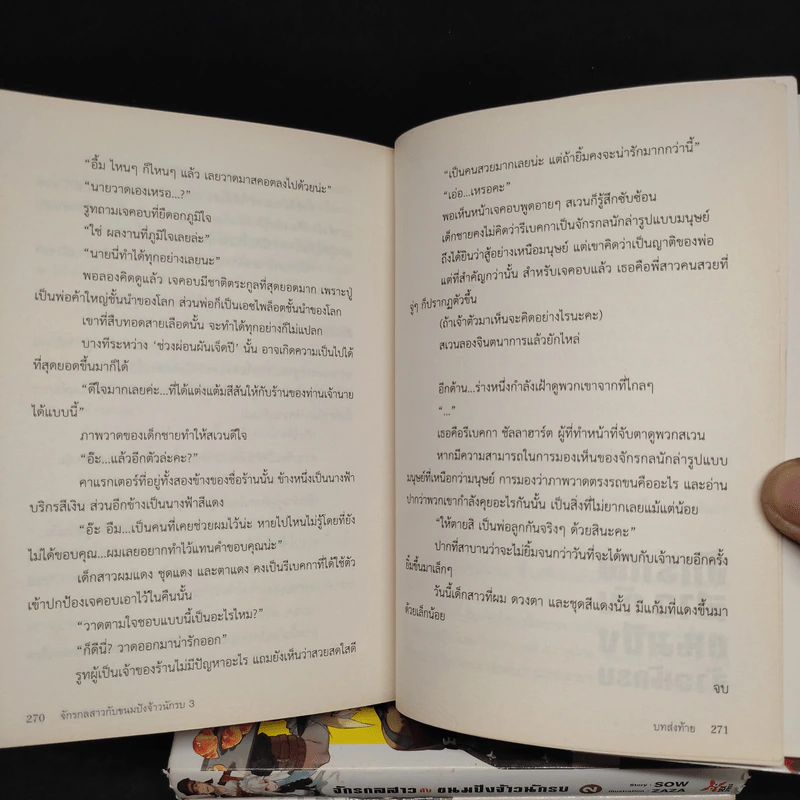 “อึ้ม ไหนๆ ก็ไหนๆ แล้ว เลยวาดมาสคอตลงไปด้วยน่ะ”
“นายวาดเองเหรอ...?”
รูทถามเจคอบที่ยืดอกภูมิใจ
“ใช่ ผลงานที่ภูมิใจเลยล่ะ”
“นายนี่ทำได้ทุกอย่างเลยนะ”
พอลองคิดดูแล้ว เจคอบมีชาติตระกูลที่สุดยอดมาก เพราะปู่
เป็นพ่อค้าใหญ่ชั้นนำของโลก ส่วนพ่อก็เป็นเอซไพล็อตชั้นนำของโลก
เขาที่สืบทอดสายเลือดนั้น จะทำได้ทุกอย่างก็ไม่แปลก
บางทีระหว่าง ‘ช่วงผ่อนผันเจ็ดปี’ นั้น อาจเกิดความเป็นไปได้
ที่สุดยอดขึ้นมาก็ได้
“ดีใจมากเลยค่ะ...ที่ได้แต่งแต้มสีสันให้กับร้านของท่านเจ้านาย
ได้แบบนี้”
ภาพวาดของเด็กชายทำให้สเวนดีใจ
“อ๊ะ...แล้วอีกตัวล่ะคะ?”
คาแรกเตอร์ที่อยู่ทั้งสองข้างของชื่อร้านนั้น ข้างหนึ่งเป็นนางฟ้า
บริกรสีเงิน ส่วนอีกข้างเป็นนางฟ้าสีแดง
“อ๊ะ อืม...เป็นคนที่เคยช่วยผมไว้น่ะ หายไปไหนไม่รู้โดยที่ยัง
ไม่ได้ขอบคุณ...ผมเลยอยากทำไว้แทนคำขอบคุณน่ะ”
เด็กสาวผมแดง ชุดแดง และตาแดง คงเป็นรีเบคกาที่ได้ใช้ตัว
เข้าปกป้องเจคอบเอาไว้ในคืนนั้น
“วาดตามใจชอบแบบนี้เป็นอะไรไหม?”
“ก็ดีนี่? วาดออกมาน่ารักออก”
รูทผู้เป็นเจ้าของร้านไม่มีปัญหาอะไร แถมยังเห็นว่าสวยสดใสดี
270 จักรกลสาวกับขนมปังจ้าวนักรบ 3
“เป็นคนสวยมากเลยน่ะ แต่ถ้ายิ้มคงจะน่ารักมากกว่านี้”
“เอ่อ...เหรอคะ”
พอเห็นหน้าเจคอบพูดอายๆ สเวนก็รู้สึกซับซ้อน
เด็กชายคงไม่คิดว่ารีเบคกาเป็นจักรกลนักล่ารูปแบบมนุษย์
ถึงได้ยินว่าสู้อย่างเหนือมนุษย์ แต่เขาคิดว่าเป็นญาติของพ่อ
แต่ที่สำคัญกว่านั้น สำหรับเจคอบแล้ว เธอคือพี่สาวคนสวยที่
จู่ๆ ก็ปรากฏตัวขึ้น
(ถ้าเจ้าตัวมาเห็นจะคิดอย่างไรนะคะ)
สเวนลองจินตนาการแล้วยักไหล่
อีกด้าน...ร่างหนึ่งกำลังเฝ้าดูพวกเขาจากที่ไกลๆ
“...”
เธอคือรีเบคกา ชัลลาฮาร์ต ผู้ที่ทำหน้าที่จับตาดูพวกสเวน
หากมีความสามารถในการมองเห็นของจักรกลนักล่ารูปแบบ
มนุษย์ที่เหนือกว่ามนุษย์ การมองว่าภาพวาดตรงรถขนคืออะไร และอ่าน
ปากว่าพวกเขากำลังคุยอะไรกันนั้น เป็นสิ่งที่ไม่ยากเลยแม้แต่น้อย
“ให้ตายสิ เป็นพ่อลูกกันจริงๆ ด้วยสินะคะ”
ปากที่สาบานว่าจะไม่ยิ้มจนกว่าวันที่จะได้พบกับเจ้านายอีกครั้ง
ยิ้มขึ้นมาเล็กๆ
วันนี้เด็กสาวที่ผม ดวงตา และชุดสีแดงนั้น มีแก้มที่แดงขึ้นมา
ด้วยเล็กน้อย
จบ
บทส่งท้าย 271
จักรกลสาว กับ ขนมปังจ้าวนักรบ
Story : SOW
Illustration : ZAZA